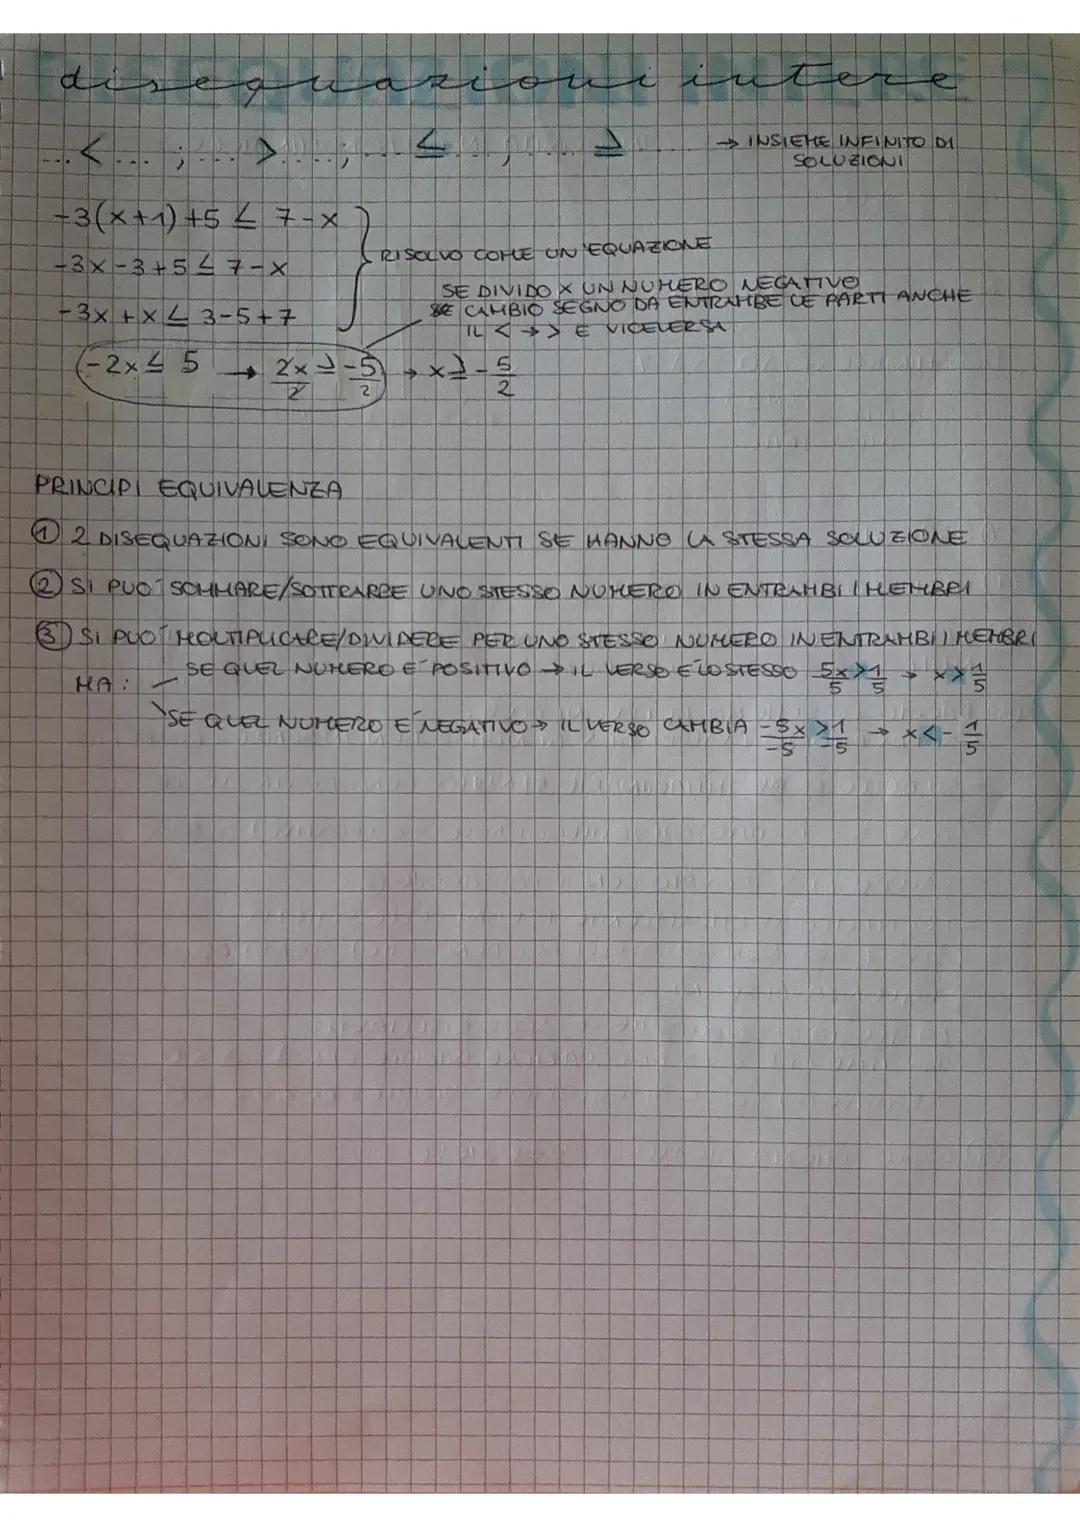 disequazioni intere
...<...;...>....;...≤...;...≥... → INSIEME INFINITO DI
SOLUZIONI
-3(x+1)+5 ≤ 7-x
RISOLVO COME UN'EQUAZIONE
-3x-3+5 ≤ 7-x
SE DIVIDO X UN NUMERO NEGATIVO
-3x+x ≤ 3-5+7
SE CAMBIO SEGNO DA ENTRAMBE LE PARTI ANCHE
IL < → > E VICEVERSA
-2x ≤ 5 → 2x/2 ≥ -5/2 → x ≥ -5/2
PRINCIPI EQUIVALENZA
① 2 DISEQUAZIONI SONO EQUIVALENTI SE HANNO LA STESSA SOLUZIONE
② SI PUO' SOMMARE/SOTTRARRE UNO STESSO NUMERO IN ENTRAMBI I MEMBRI
③ SI PUO' MOLTIPLICARE/DIVIDERE PER UNO STESSO NUMERO IN ENTRAMBI I MEMBRI
MA: SE QUEL NUMERO E' POSITIVO → IL VERSO E' LO STESSO 5x/5 > 1/5 → x > 1/5
SE QUEL NUMERO E' NEGATIVO → IL VERSO CAMBIA -5x/-5 > 1/-5 → x < -1/5